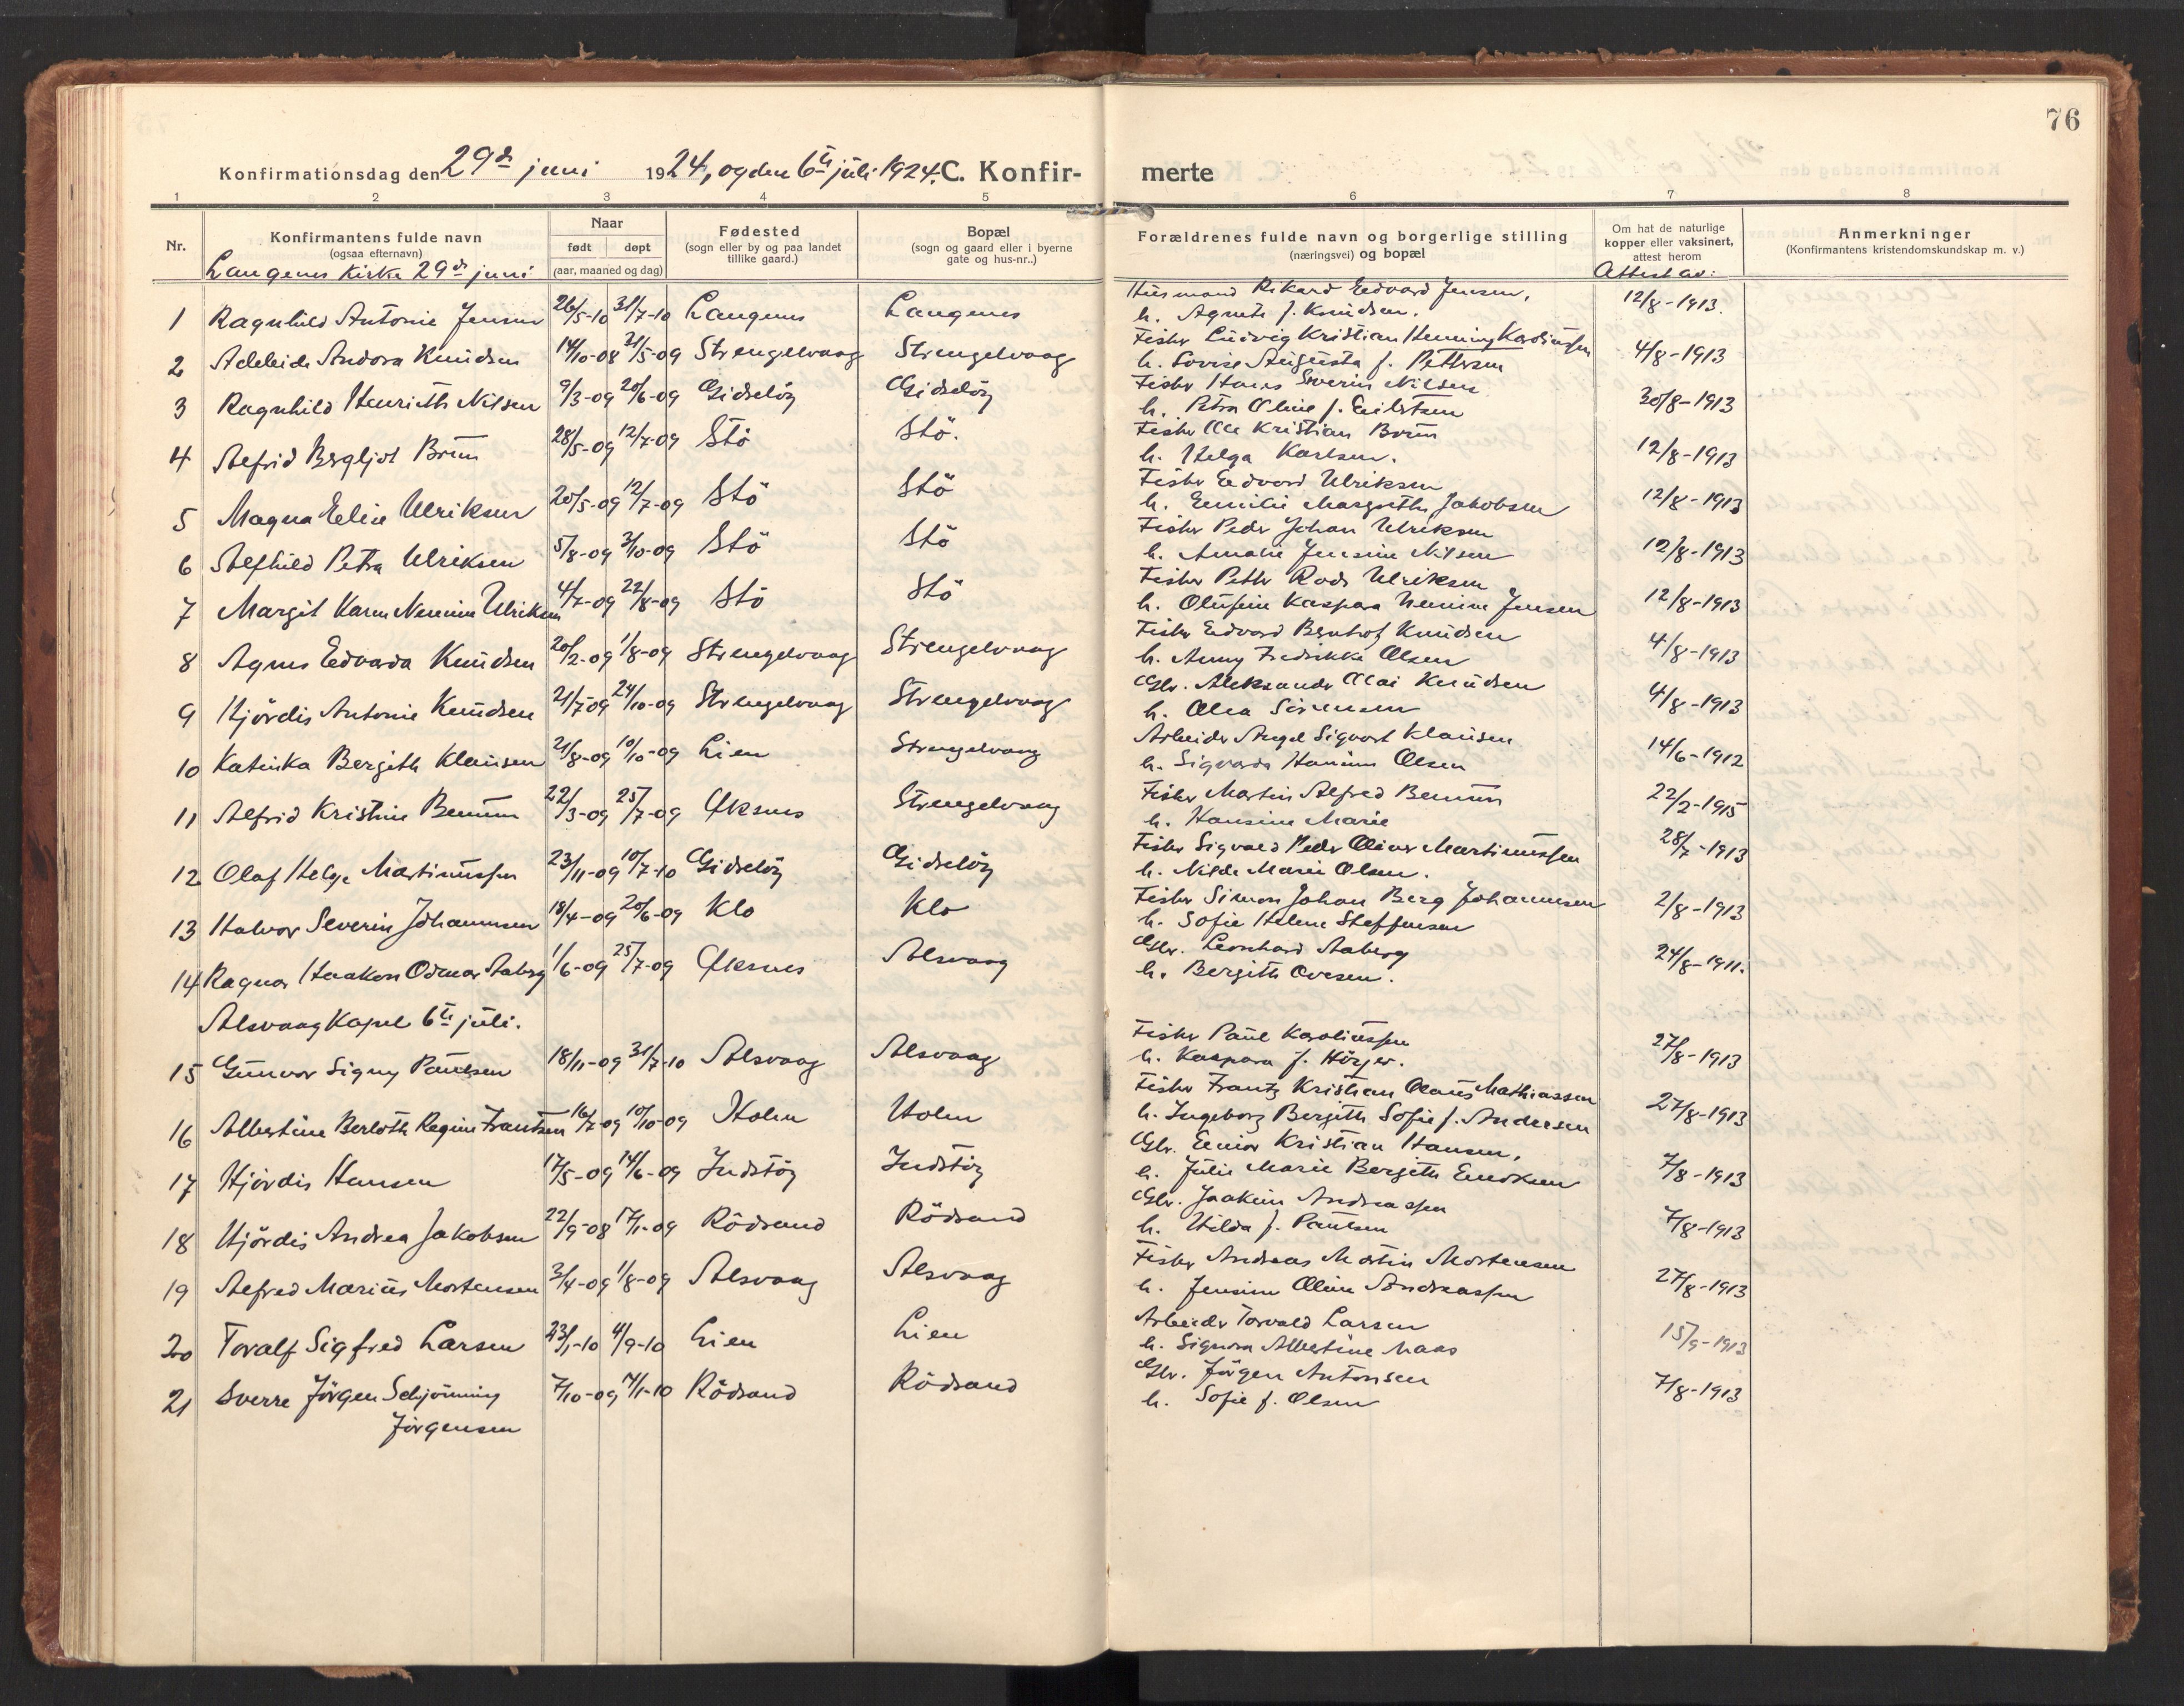 76
Konfirmationsdag den 29de juni 1924, og den 6te juli 1924. C. Konfirmerte
1 2 3 4 5 6 7 8
Nr. | Konfirmantens fulde navn (ogsaa efternavn) | Naar født døpt (aar, maaned og dag) | Fødested (sogn eller by og paa landet tillike gaard.) | Bopæl (sogn og gaard eller i byerne gate og hus-nr..) | Forældrenes fulde navn og borgerlige stilling (næringsvei) og bopæl | Om hat de naturlige kopper eller vaksinert, attest herom | Anmerkninger (Konfirmantens kristendomskundskap m. v.)
Langenes Kirke 29de juni
Attest av:
1 Ragnhild Antonie Jensen 26/5-10 31/7-10 Langenes Langenes Husmand Rikard Edvard Jensen, h. Agnete f. Knudsen. 12/8-1913.
2 Adeleide Andora Knudsen 14/10-08 21/5-09 Strengelvaag Strengelvaag Fisker Ludvig Kristian Henning Karoliussen h. Lovise Augusta f. Pettersen 4/8-1913
3 Ragnhild Henriette Nilsen 9/3-09 20/6-09 Gidsløy Gidsløy Fisker Hans Severin Nilsen h. Petra Oline f. Eilertsen 30/8-1913
4 Alfrid Bergljot Brun 28/5-09 12/7-09 Stö Stö. Fisker Ole Kristian Brun h. Helga Karlsen. 12/8-1913
5 Magna Elin Ulriksen 20/5-09 12/7-09 Stö Stö Fisker Edvard Ulriksen h. Emilie Margrethe Jakobsen 12/8-1913
6 Alfhild Petra Ulriksen 5/8-09 3/10-09 Stö Stö Fisker Peder Johan Ulriksen h. Amalie Jensine Nilsen 12/8-1913
7 Margit Karen Nennine Ulriksen 4/7-09 22/8-09 Stö Stö Fisker Petter Rode Ulriksen h. Olufine Kaspara Nennine Jensen 12/8-1913
8 Agnes Edvarda Knudsen 20/2-09 1/8-09 Strengelvaag Strengelvaag Fisker Edvard Bernhof Knudsen h. Anny Fredrikke Olsen 4/8-1913
9 Hjördis Antonie Knudsen 21/7-09 24/10-09 Strengelvaag Strengelvaag Gbr. Aleksander Olai Knudsen h. Olea Sörensen 4/8-1913
10 Katinka Bergith Klausen 21/8-09 10/10-09 Lien Strengelvaag Arbeider Angel Sigvart Klausen h. Sigvarda Hanine Olsen 14/6-1912
11 Alfrid Kristine Benum 22/3-09 25/7-09 Öksnes Strengelvaag Fisker Martin Alfred Benum h. Hansine Marie 22/2-1915
12 Olaf Helge Martinussen 23/11-09 10/7-10 Gidsløy Gidsløy Fisker Sigvald Peder Oliver Martinussen h. Marie Olsen. 28/7-1913
13 Halvor Severin Johannesen 18/4-09 20/6-09 Klo Klo Fisker Simon Johan Berg Johannesen h. Sofie Helene Steffensen 2/8-1913
14 Ragnar Haakon Odmar Aaberg 1/6-09 25/7-09 Öksnes Alsvaag Gbr. Leonhard Aaberg h. Bergith Ovesen. 24/8-1911.
Alsvaag Kapel 6te juli.
15 Gunvor Signy Paulsen 18/11-09 31/7-10 Alsvaag Alsvaag Fisker Paul Karoliussen h. Kaspara f. Höyer. 27/8-1913
16 Albertine Berlothe Regine Frantzen 16/7-09 10/10-09 Holm Holm Fisker Frantz Kristian Olaus Mathiassen h. Ingeborg Bergith Sofie f. Andersen 27/8-1913
17 Hjördis Hansen 17/5-09 14/6-09 Indstöy Indstöy Gbr. Einar Kristian Hansen, h. Julie Marie Bergith Endresen 7/8-1913
18 Hjördis Andrea Jakobsen 22/9-08 17/1-09 Rödsand Rödsand Gbr. Joakim Andreassen h. Hilda f. Paulsen 7/8-1913
19 Alfred Marius Mortensen 3/4-09 1/8-09 Alsvaag Alsvaag Fisker Andreas Martin Mortensen h. Jensine Oline Andreassen 27/8-1913
20 Toralf Sigfred Larsen 23/1-10 4/9-10 Lien Lien Arbeider Torvald Larsen h. Signora Albertine Maas 15/9-1913
21 Sverre Jörgen Schjönning Jörgensen 7/10-09 4/1-10 Rödsand Rödsand Gbr. Jörgen Antonsen h. Sofie f. Olsen 7/8-1913